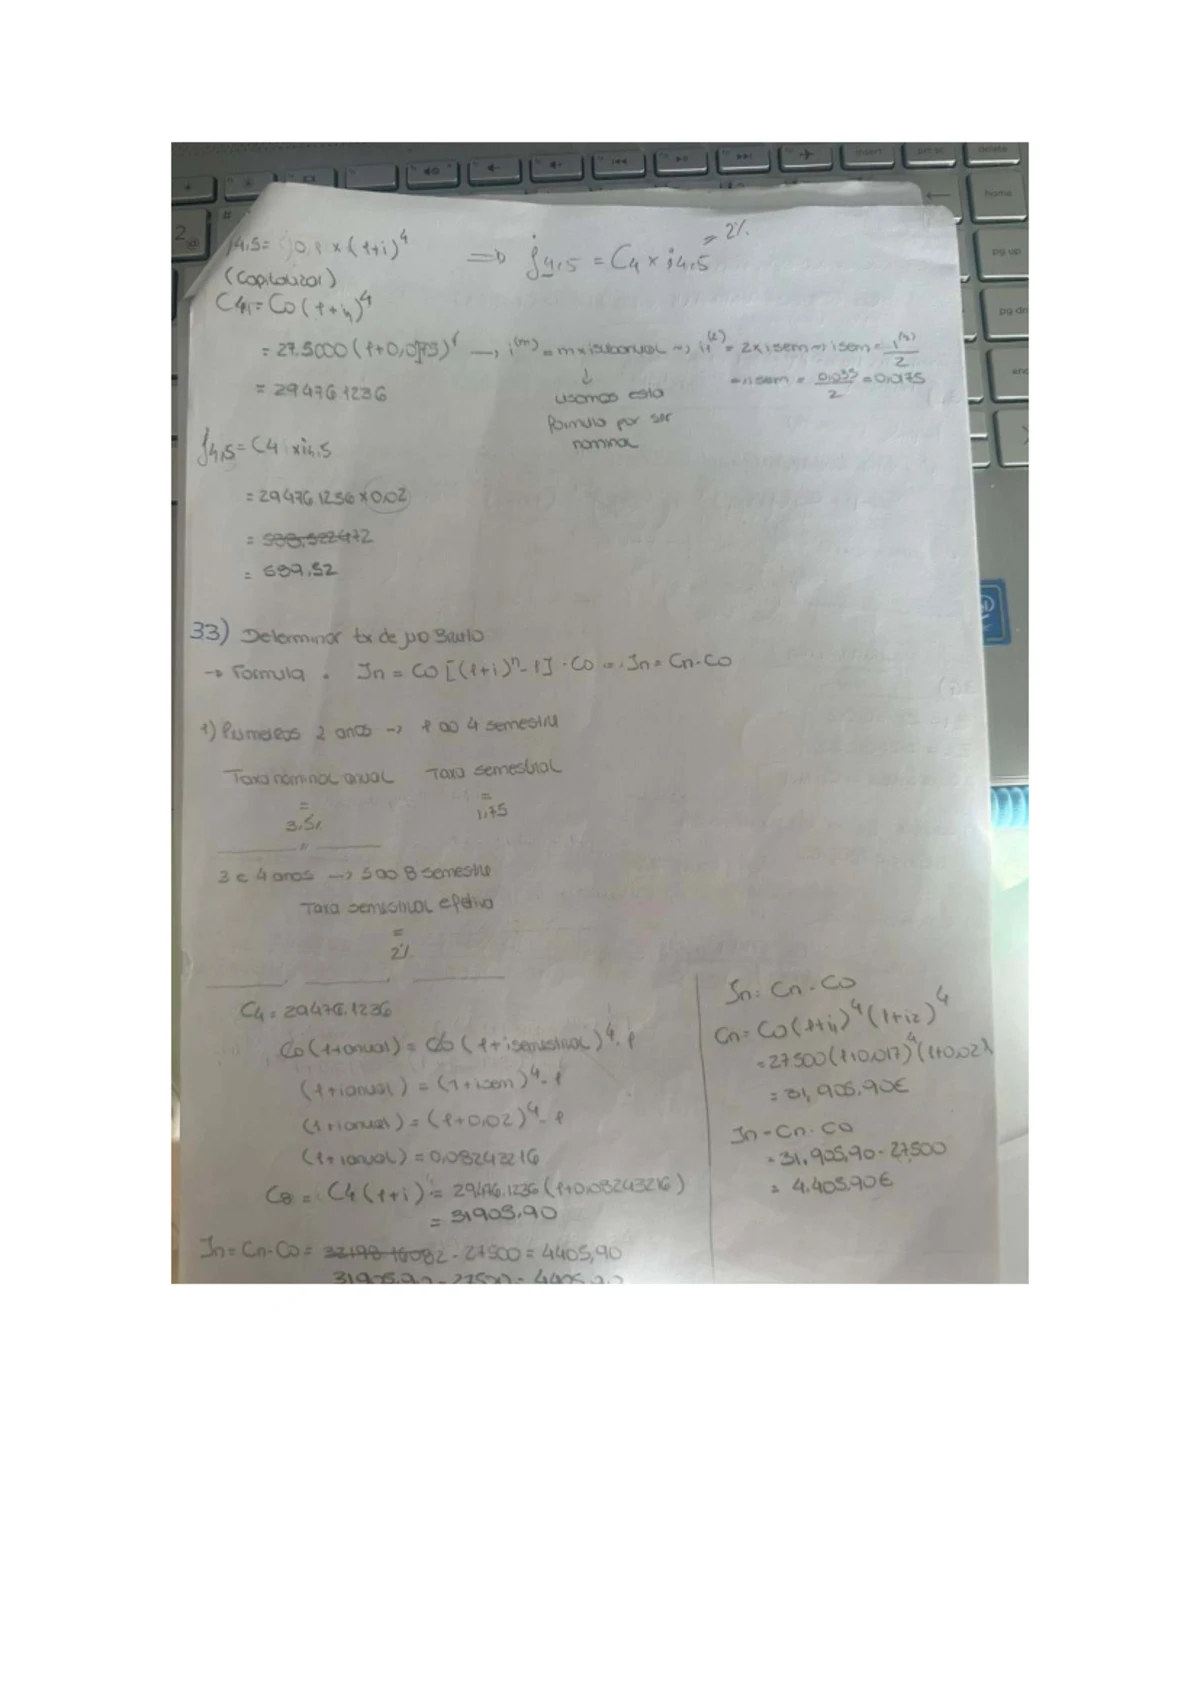 j4,5= C0,1 x (1+i)^4 => j4,5 = C4 x i4,5 => 2%
(Capitalizar)
C4 = C0 (1+i1)^4
= 27.5000 (1+0,0175)^4 → i^(m) = m x isubanual → i1^(2) = 2 x isem → isem = i^(2)/2
= 29476.1236
→ isem = 0,035/2 = 0,0175
↓
usamos esta
formula por ser
nominal
j4,5 = C4 x i4,5
= 29476.1236 x 0,02
= 589,52
33) Determinar tx de juro Bruto
→ Formula . Jn = C0 [(1+i)^n - 1] . C0 Jn = Cn - C0
1) Primeiros 2 anos → 1 ao 4 semestre
Taxa nominal anual Taxa semestral
= =
3,5% 1,75
3 e 4 anos → 5 ao 8 semestre
Taxa semestral efetiva
=
2%
C4 = 29476.1236
C0 (1+anual) = C0 (1+isemestral)^4 - 1
(1+ianual) = (1+isem)^4 - 1
(1+ianual) = (1+0,02)^4 - 1
(1+ianual) = 0,08243216
C8 = C4 (1+i) = 29476.1236 (1+0,08243216)
= 31905,90
Jn = Cn - C0 = - 27500 = 4405,90
31905,90 - 27500 = 4405,90
Jn = Cn - C0
Cn = C0 (1+i1)^4 (1+i2)^4
= 27500 (1+0,017)^4 (1+0,02)
= 31,905,90€
Jn = Cn - C0
= 31.905,90 - 27500
= 4.405,90€
2
@
insert
prt sc
delete
home
pg up
pg dn